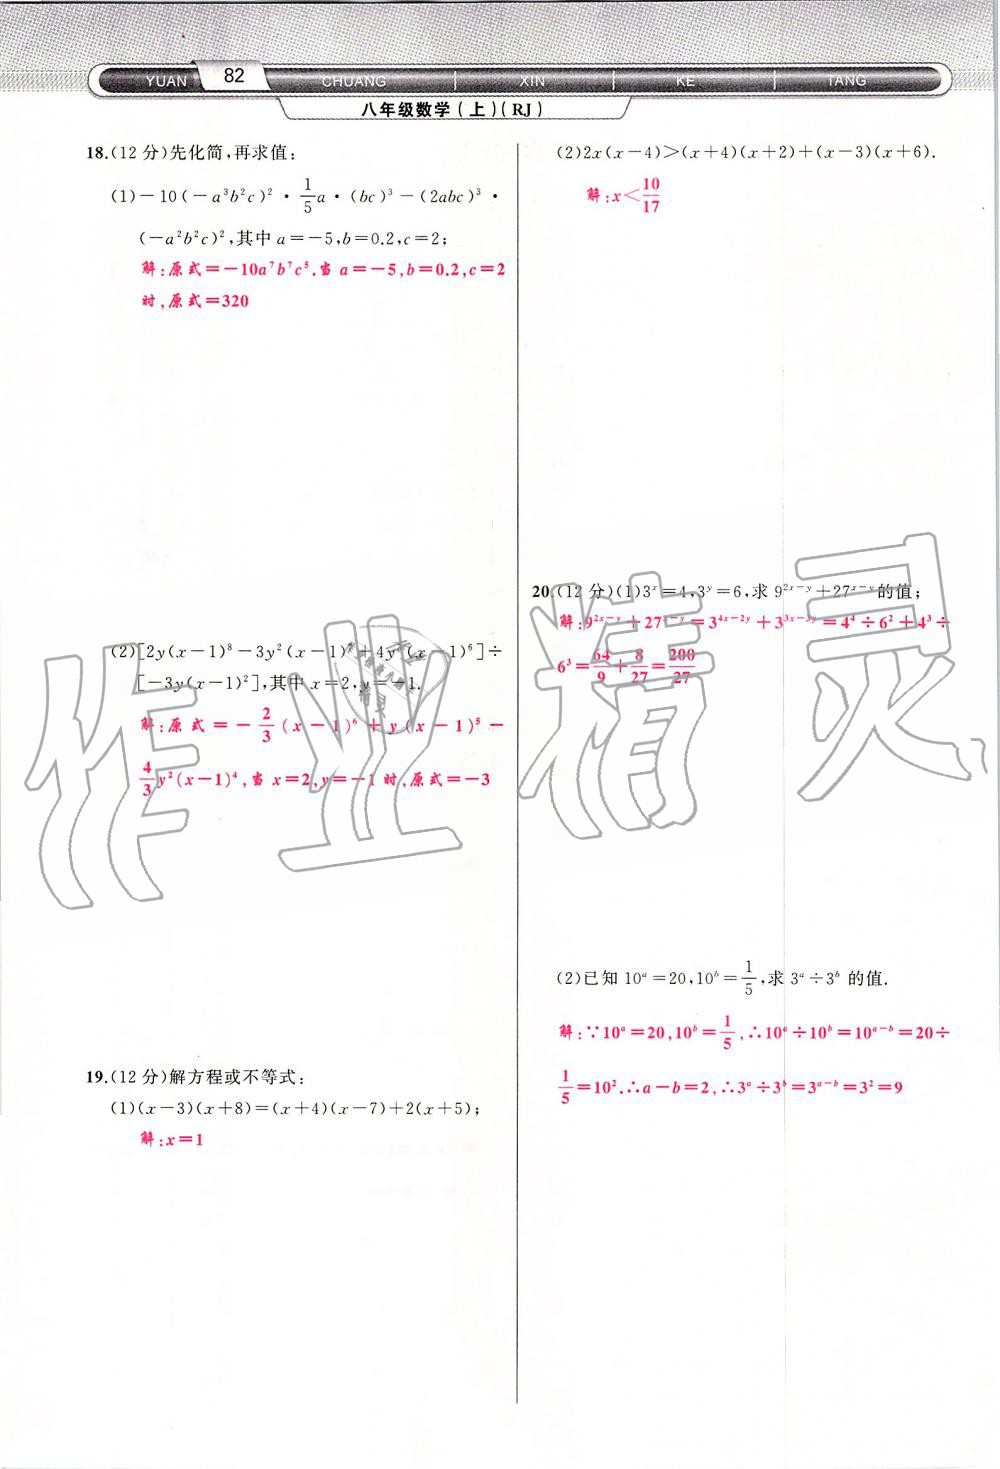 YUAN 82 CHUANG XIN KE TANG
八年级数学(上)(RJ)
18.(12分)先化简,再求值:
(1)-10(-a³b²c)²·1/5a·(bc)³-(2abc)³·
(-a²b²c)²,其中a=-5,b=0.2,c=2;
解:原式=-10a⁷b⁷c⁵.当a=-5,b=0.2,c=2
时,原式=320
(2)[2y(x-1)⁸-3y²(x-1)⁷+4y³(x-1)⁶]÷
[-3y(x-1)²],其中x=2,y=-1.
解:原式=-2/3(x-1)⁶+y(x-1)⁵-
4/3y²(x-1)⁴,当x=2,y=-1时,原式=-3
19.(12分)解方程或不等式:
(1)(x-3)(x+8)=(x+4)(x-7)+2(x+5);
解:x=1
(2)2x(x-4)>(x+4)(x+2)+(x-3)(x+6).
解:x<10/17
20.(12分)(1)3ˣ=4,3ʸ=6,求9²ˣ⁻ʸ+27ˣ⁻ʸ的值;
解:9²ˣ⁻ʸ+27ˣ⁻ʸ=3⁴ˣ⁻²ʸ+3³ˣ⁻³ʸ=4⁴÷6²+4³÷
6³=64/9+8/27=200/27
(2)已知10ᵃ=20,10ᵇ=1/5,求3ᵃ÷3ᵇ的值.
解:∵10ᵃ=20,10ᵇ=1/5,∴10ᵃ÷10ᵇ=10ᵃ⁻ᵇ=20÷
1/5=10².∴a-b=2,∴3ᵃ÷3ᵇ=3ᵃ⁻ᵇ=3²=9
作业精灵